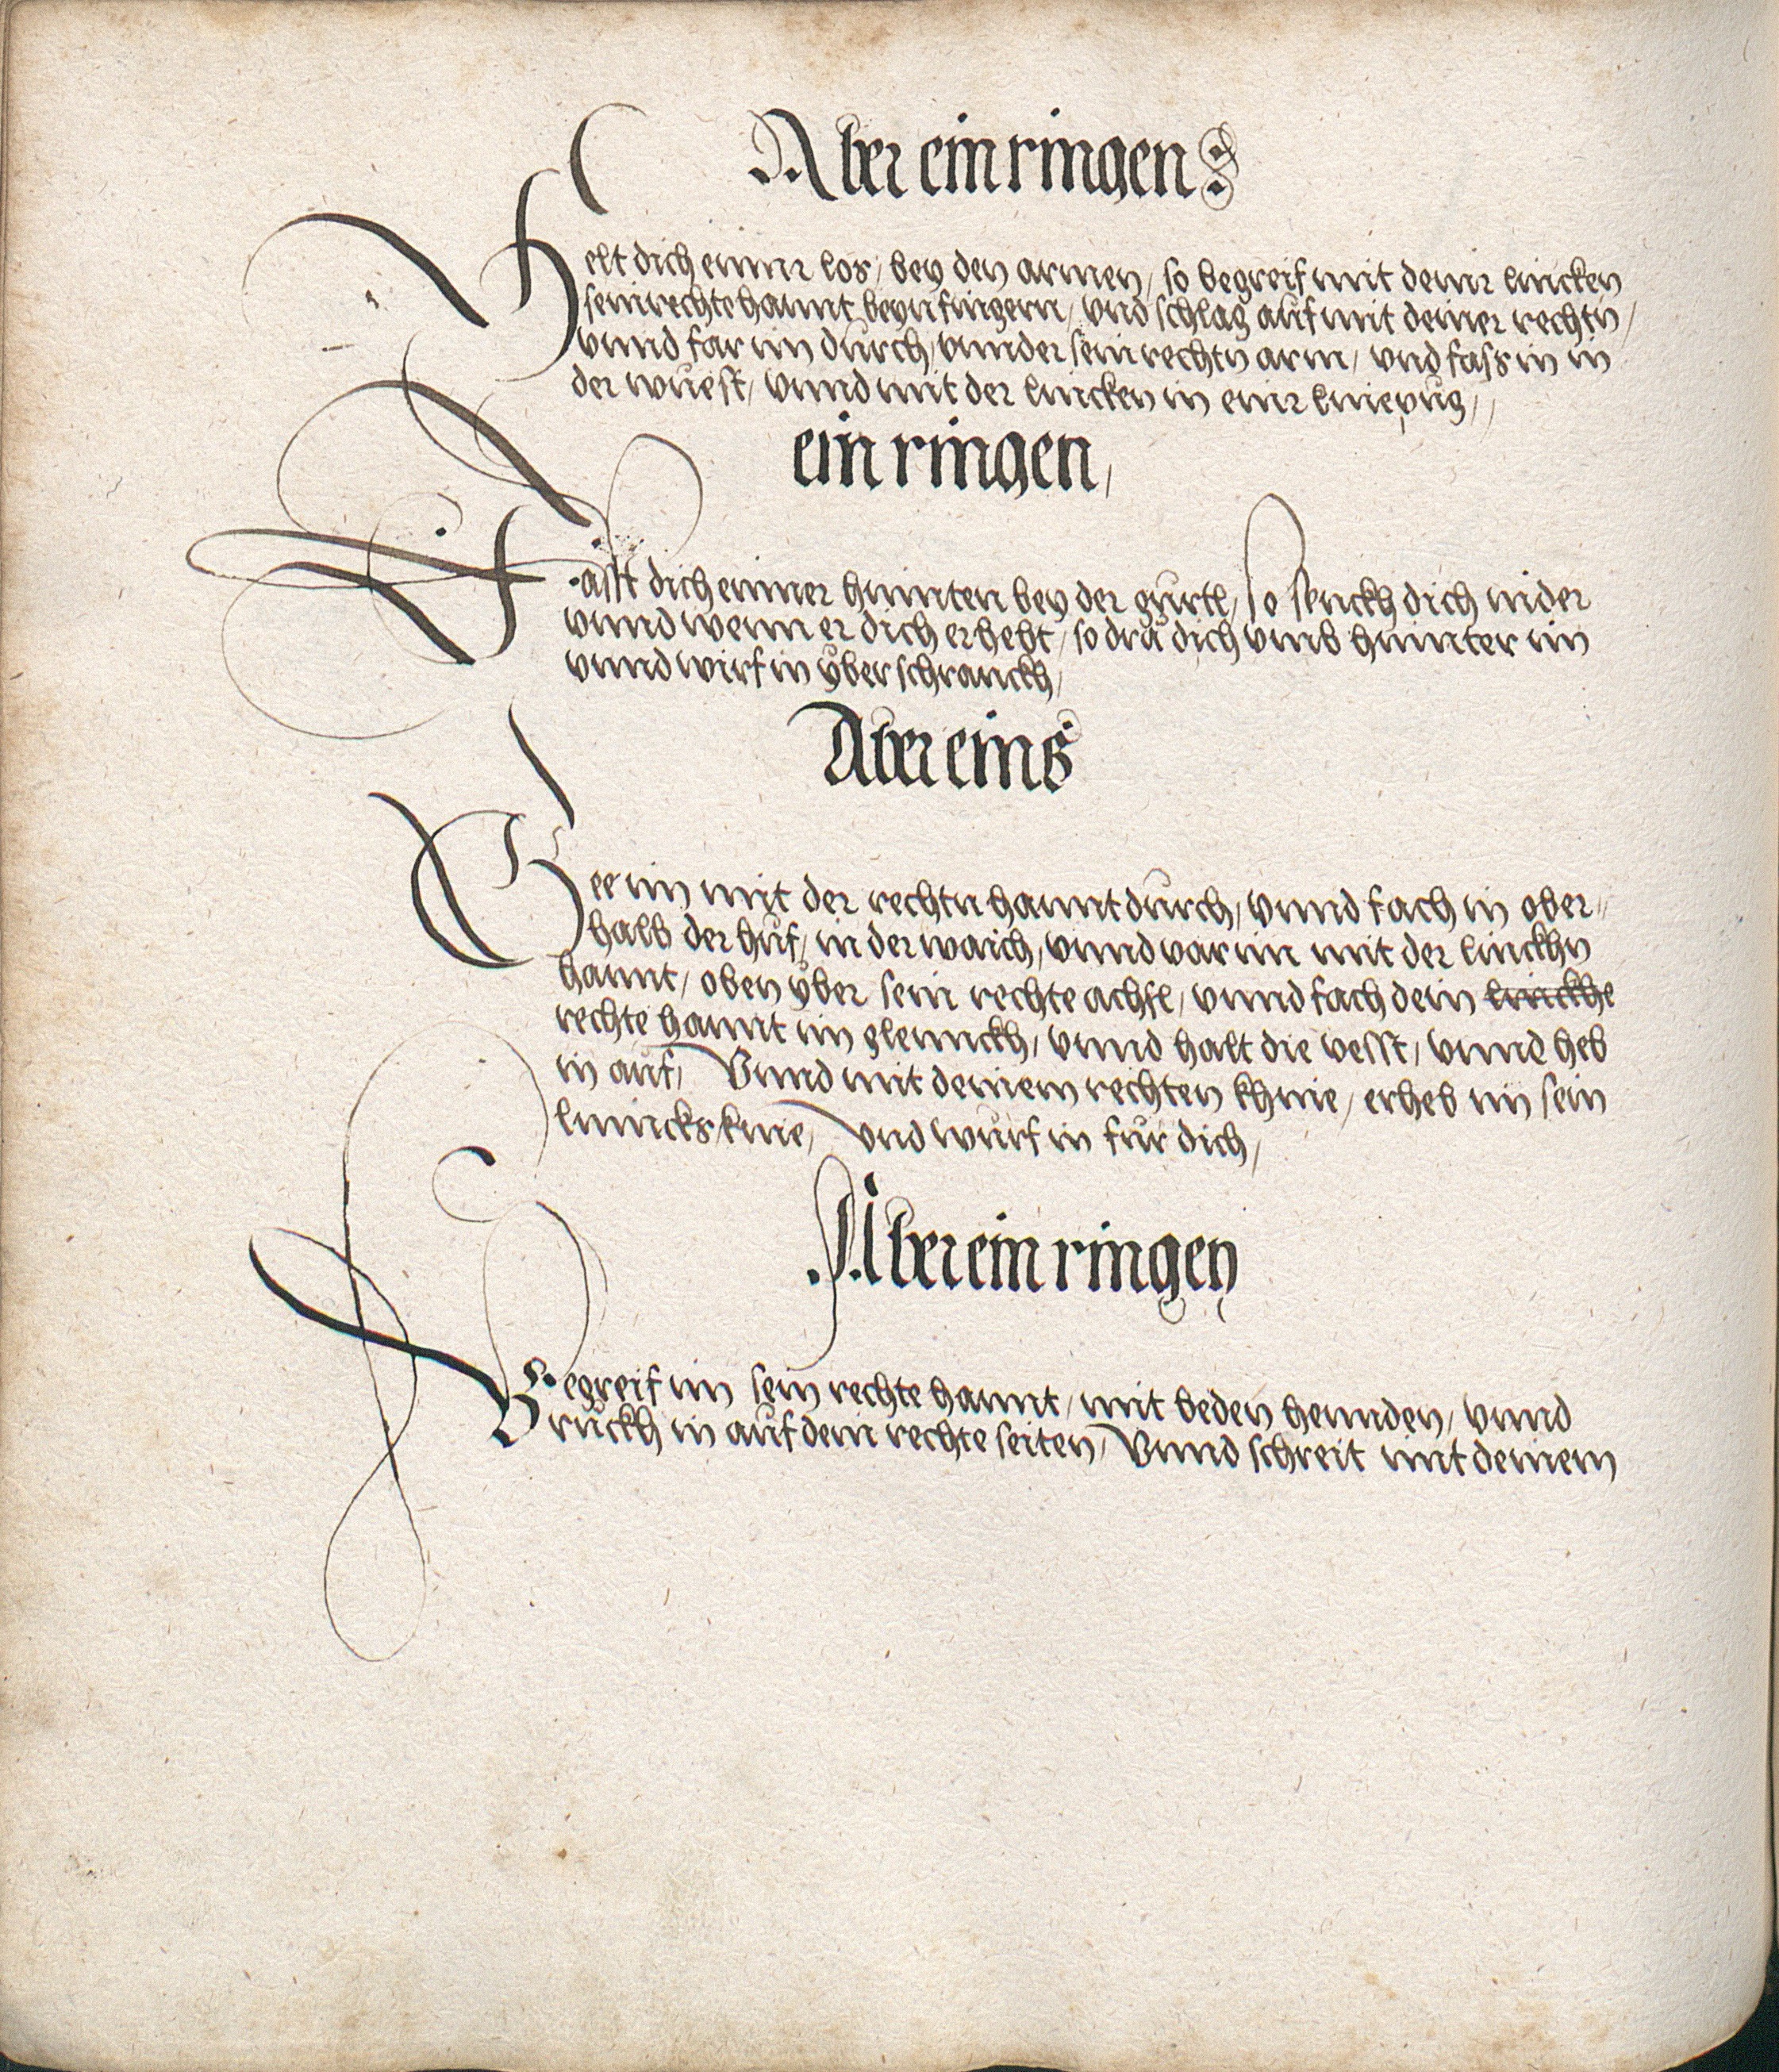 Aber ein ringen
Helt dich einner los / bey den armen / so begreif mit deinr lincken
sein rechte hannt beyn fingern / vnd schlag auf mit deiner rechtn /
vnnd far im durch / vnnder sein rechtn arm / vnd fass in in
der wuest / vnnd mit der lincken in einr kniepug /
ein ringen /
Fasst dich einner hinnten bey der gurtl / so senckh dich nider
vnnd wenn er dich erhebt / so drä dich vmb hinnter im
vnnd wirf in yber schranckh /
Aber eins
Gee im mit der rechtn hannt durch / vnnd fach in ober
halb der huf / in der waich / vnnd var im mit der linckhn
hannt / oben yber sein rechte achsl / vnnd fach dein linckhe
rechte hannt im glennckh / vnnd halt die vesst / vnnd heb
in auf / Vnnd mit deinem rechten khnie / erheb im sein
linncks knie / vnd wurf in fur dich /
Aber ein ringen
Begreif im sein rechte hannt / mit beden hennden / vnnd
Druckh in auf dein rechte seiten / Vnnd schreit mit deinem